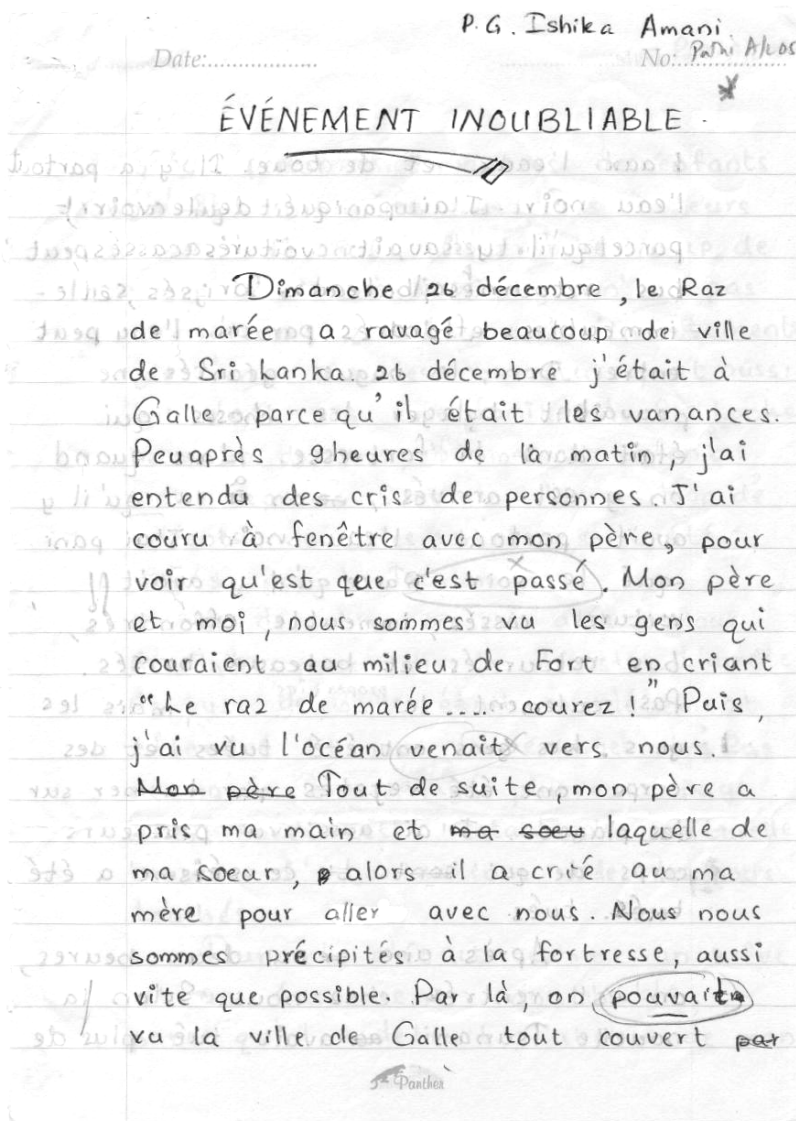 P.G. Ishika Amani.
Date:.................. No:..................
ÉVÉNEMENT INOUBLIABLE.
Dimanche 26 décembre, le Raz
de marée a ravagé beaucoup de ville
de Sri Lanka 26 décembre j'était à
Galle parcequ'il était les vanances.
Peuaprès 9heures de là matin, j'ai
entendu des cris de personnes. J'ai
couru à fenêtre avec mon père, pour
voir qu'est que c'est passé. Mon père
et moi, nous sommes vu les gens qui
couraient au milieu de Fort en criant
"Le raz de marée .... courez!" Puis,
j'ai vu l'océan venait vers nous.
Mon père Tout de suite, mon père a
pris ma main et ma soeu laquelle de
ma soeur, alors il a crié au ma
mère pour aller avec nous. Nous nous
sommes précipités à la fortresse, aussi
vite que possible. Par là, on pouvait
vu la ville de Galle tout couvert par
Panther